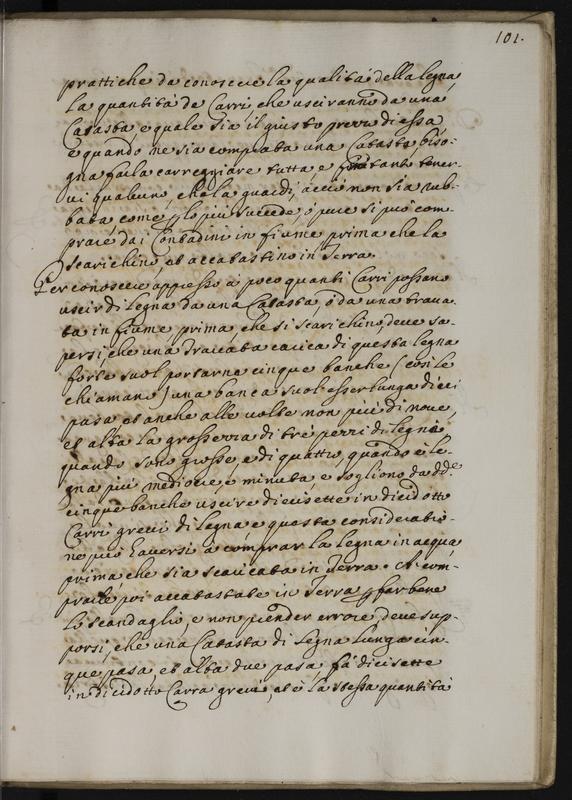 101.
prattiche da conoscere la qualità della legna
La quantità de Carri che usciranno da una
Catasta e quale sia il giusto prezzo di essa
e quando ne sia comprata una Catasta biso-
gna farla carreggiare tutta e tener-
vi qualcuno, che la guardi, acciò non sia rub-
bata come p lo più succede, ò pure si può com-
prare dai Contadini in fiume prima che la
scarichino, et accatastino in Terra.
Per conoscere appresso à poco quanti Carri possano
uscir di legna da una Catasta, ò da una trava-
ta in fiume prima, che si scarichino, deve sa-
persi, che una Traicata carica di questa legna
forte suol portarne cinque banche (così le
chiamano) una banca suol esser lunga dieci
passa, et anche alle volte non più di nove,
et alta la grossezza di trè pezzi di legno
quando sono grosse, e di quattro, quando è le-
gna più mediocre, e minuta, e sogliono da dde
cinque banche uscire diecisette in dicidotto
Carri grevi di legna, e questa consideratio-
ne può haversi à comprar la legna in acqua
prima, che sia scaricata in Terra. A com-
prarle poi accatastate in Terra p far bene
lo scandaglio, e non prender errore, deve sup-
porsi, che una Catasta di Legna lunga cin-
que passa, et alta due passa, fà dicisette
in dicidotto Carra grevi, et è la stessa quantità